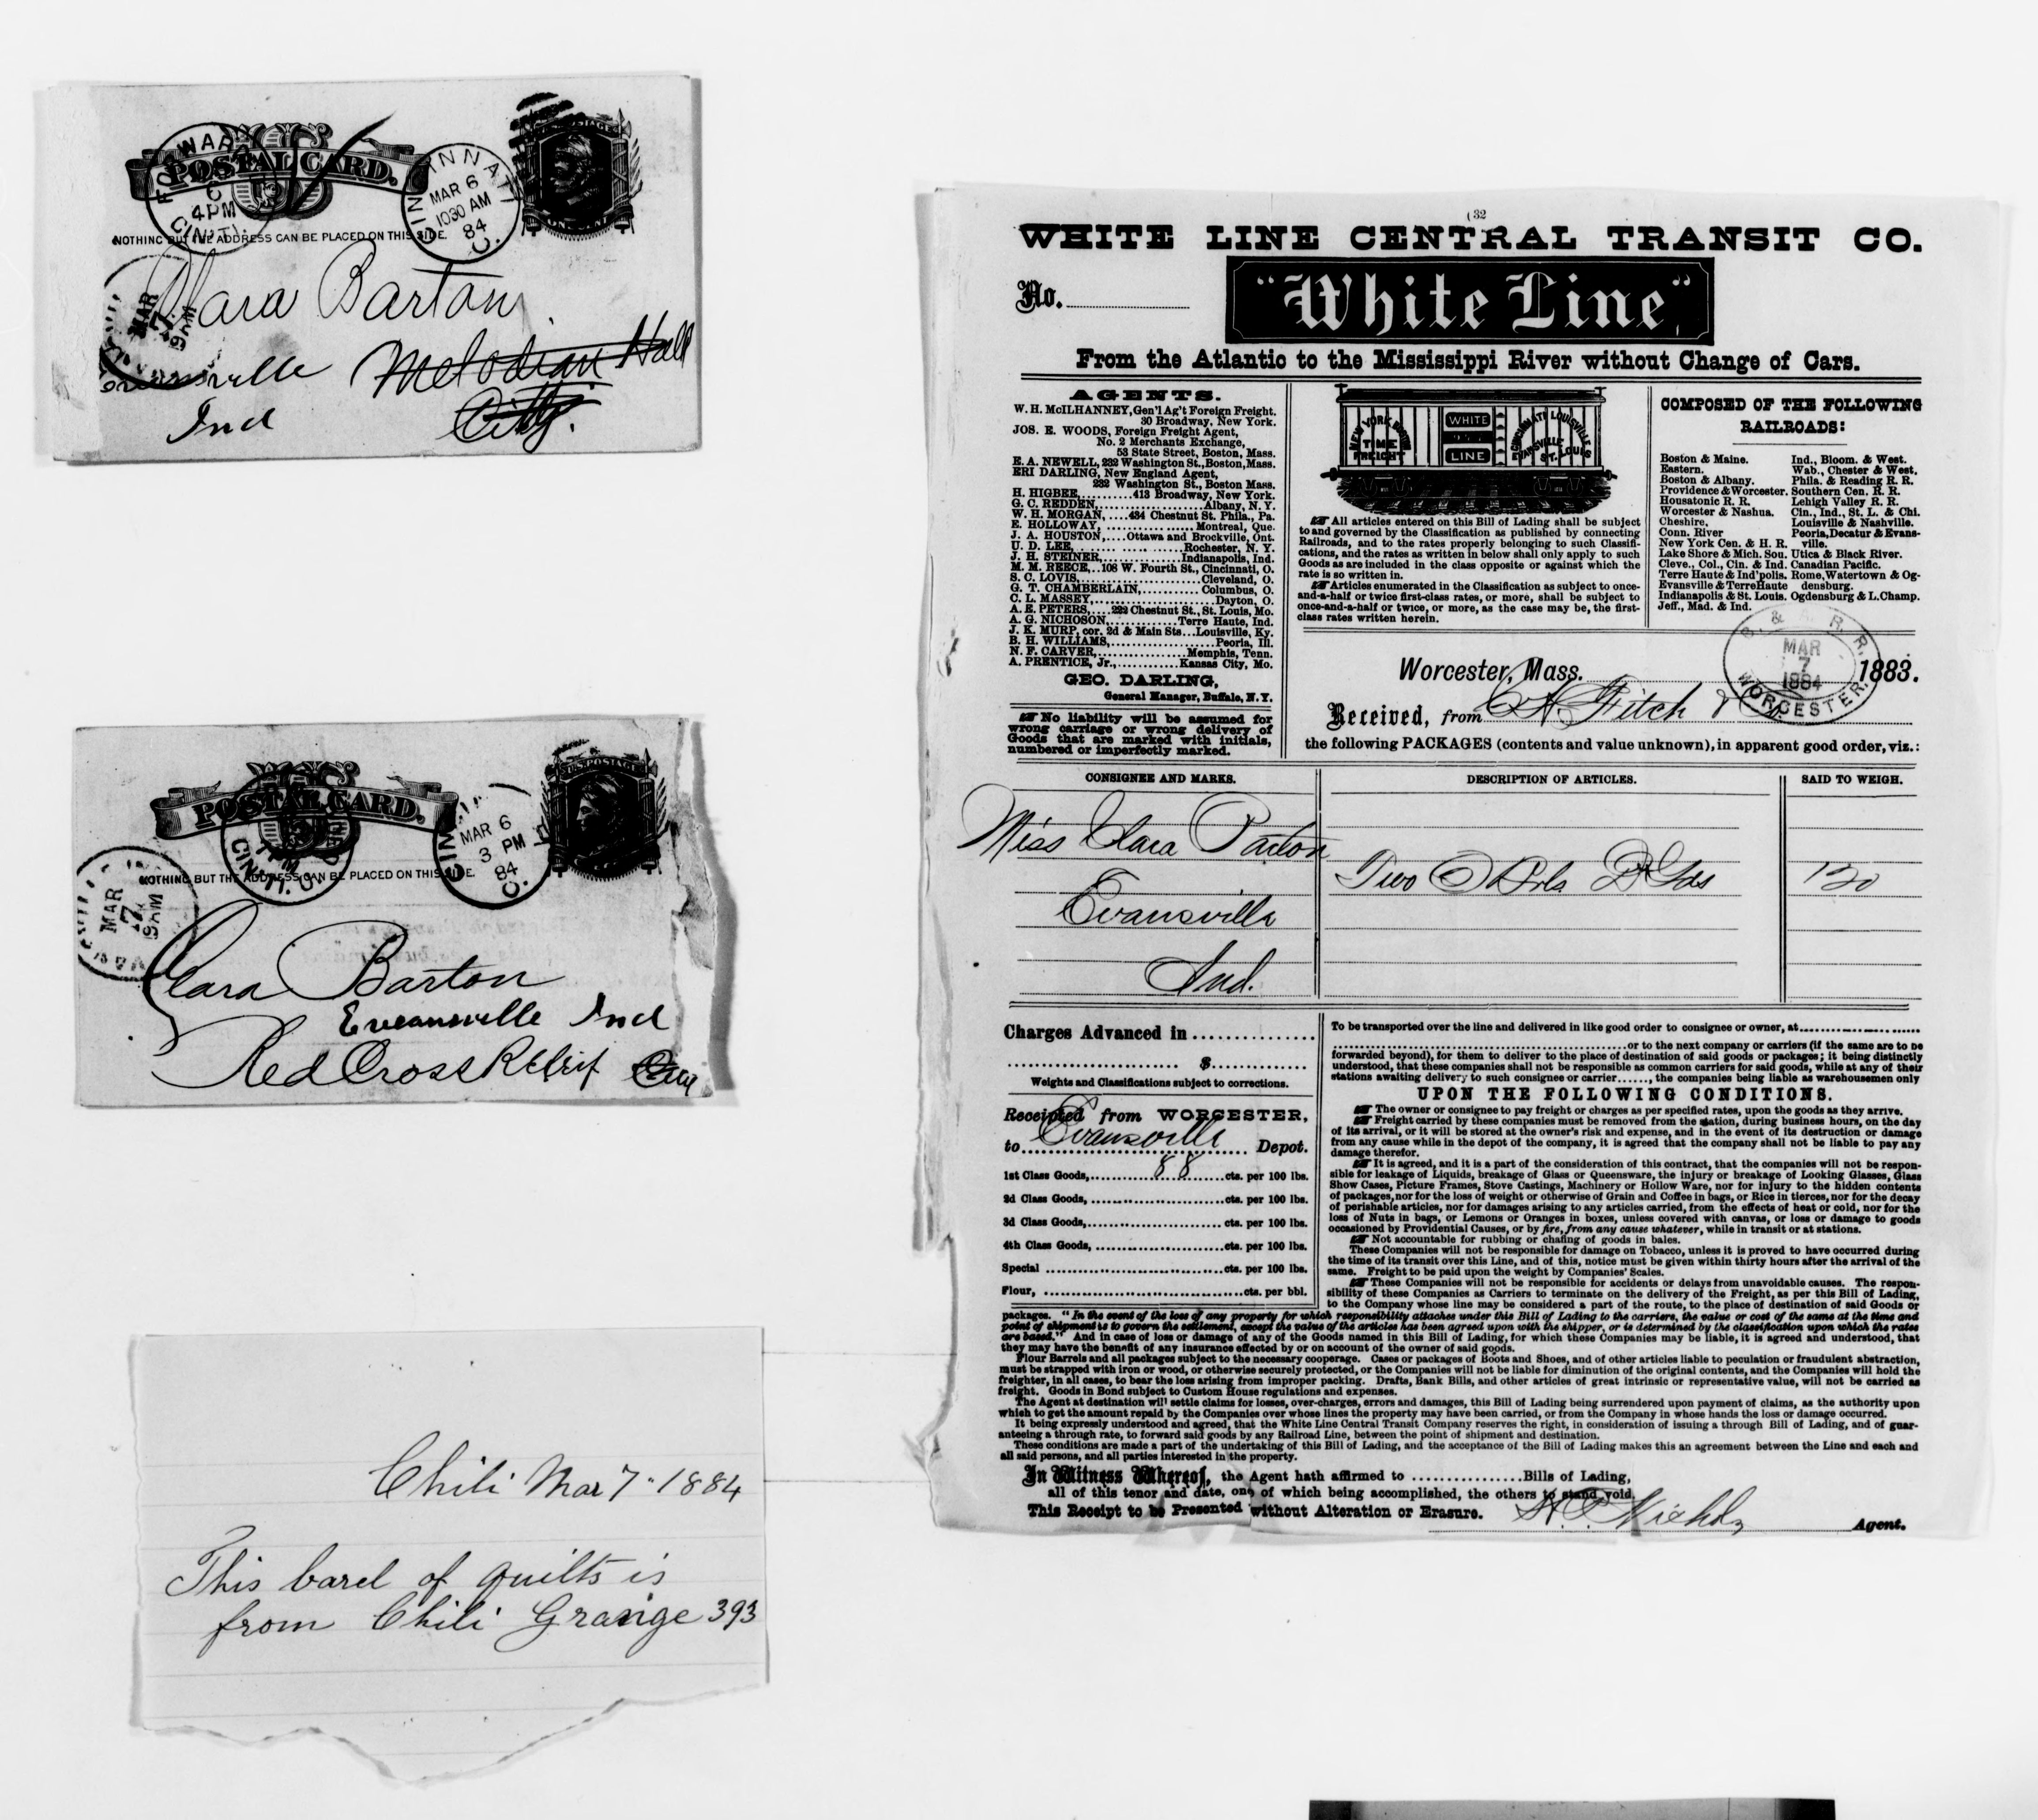 POSTAL CARD.
FORWARDED
4 PM
CIN'TI.
CINCINNATI
MAR 6
1030 AM
84
O.
U.S. POSTAGE
ONE CENT
NOTHING BUT THE ADDRESS CAN BE PLACED ON THIS SIDE.
MAR
7
9 AM
Clara Barton
Evansville Melodian Hall
Ind City.
POSTAL CARD.
CIN'TI. O.
MAR 6
3 PM
84
O.
U.S. POSTAGE
NOTHING BUT THE ADDRESS CAN BE PLACED ON THIS SIDE.
MAR
7
9 AM
Clara Barton
Evansville Ind
Red Cross Relief City
Chili Mar 7" 1884
This barel of quilts is
from Chili Grange 393
(32
WHITE LINE CENTRAL TRANSIT CO.
No.
"White Line"
From the Atlantic to the Mississippi River without Change of Cars.
AGENTS.
W. H. McILHANNEY, Gen'l Ag't Foreign Freight.
30 Broadway, New York.
JOS. E. WOODS, Foreign Freight Agent,
No. 2 Merchants Exchange,
53 State Street, Boston, Mass.
E. A. NEWELL, 232 Washington St., Boston, Mass.
ERI DARLING, New England Agent,
232 Washington St., Boston Mass.
H. HIGBEE, 413 Broadway, New York.
G. C. REDDEN, Albany, N. Y.
W. H. MORGAN, 434 Chestnut St. Phila., Pa.
E. HOLLOWAY, Montreal, Que.
J. A. HOUSTON, Ottawa and Brockville, Ont.
U. D. LEE, Rochester, N. Y.
J. H. STEINER, Indianapolis, Ind.
M. M. REECE, 108 W. Fourth St., Cincinnati, O.
S. C. LOVIS, Cleveland, O.
G. T. CHAMBERLAIN, Columbus, O.
C. L. MASSEY, Dayton, O.
A. E. PETERS, 222 Chestnut St., St. Louis, Mo.
A. G. NICHOSON, Terre Haute, Ind.
J. K. MURP, cor. 2d & Main Sts. Louisville, Ky.
B. H. WILLIAMS, Peoria, Ill.
N. F. CARVER, Memphis, Tenn.
A. PRENTICE, Jr., Kansas City, Mo.
GEO. DARLING,
General Manager, Buffalo, N. Y.
No liability will be assumed for
wrong carriage or wrong delivery of
Goods that are marked with initials,
numbered or imperfectly marked.
NEW YORK BOSTON
TIME
FREIGHT
WHITE
LINE
CINCINNATI LOUISVILLE
EVANSVILLE
ST. LOUIS
All articles entered on this Bill of Lading shall be subject
to and governed by the Classification as published by connecting
Railroads, and to the rates properly belonging to such Classifi-
cations, and the rates as written in below shall only apply to such
Goods as are included in the class opposite or against which the
rate is so written in.
Articles enumerated in the Classification as subject to once-
and-a-half or twice first-class rates, or more, shall be subject to
once-and-a-half or twice, or more, as the case may be, the first-
class rates written herein.
COMPOSED OF THE FOLLOWING
RAILROADS:
Boston & Maine.
Eastern.
Boston & Albany.
Providence & Worcester.
Housatonic R. R.
Worcester & Nashua.
Cheshire,
Conn. River
New York Cen. & H. R.
Lake Shore & Mich. Sou.
Cleve., Col., Cin. & Ind.
Terre Haute & Ind'polis.
Evansville & Terre Haute
Indianapolis & St. Louis.
Jeff., Mad. & Ind.
Ind., Bloom. & West.
Wab., Chester & West.
Phila. & Reading R. R.
Southern Cen. R. R.
Lehigh Valley R. R.
Cin., Ind., St. L. & Chi.
Louisville & Nashville.
Peoria, Decatur & Evans-
ville.
Utica & Black River.
Canadian Pacific.
Rome, Watertown & Og-
densburg.
Ogdensburg & L. Champ.
Worcester, Mass. 1883.
B. & A. R. R.
MAR
7
1884
WORCESTER.
Received, from C A Fitch &
the following PACKAGES (contents and value unknown), in apparent good order, viz.:
CONSIGNEE AND MARKS. DESCRIPTION OF ARTICLES. SAID TO WEIGH.
Miss Clara Barton
Two Brls D Gds 120
Evansville
Ind.
Charges Advanced in
$
Weights and Classifications subject to corrections.
Receipted from WORCESTER,
to Evansville Depot.
1st Class Goods, 88 cts. per 100 lbs.
2d Class Goods, cts. per 100 lbs.
3d Class Goods, cts. per 100 lbs.
4th Class Goods, cts. per 100 lbs.
Special cts. per 100 lbs.
Flour, cts. per bbl.
To be transported over the line and delivered in like good order to consignee or owner, at
or to the next company or carriers (if the same are to be
forwarded beyond), for them to deliver to the place of destination of said goods or packages; it being distinctly
understood, that these companies shall not be responsible as common carriers for said goods, while at any of their
stations awaiting delivery to such consignee or carrier......, the companies being liable as warehousemen only
UPON THE FOLLOWING CONDITIONS.
The owner or consignee to pay freight or charges as per specified rates, upon the goods as they arrive.
Freight carried by these companies must be removed from the station, during business hours, on the day
of its arrival, or it will be stored at the owner's risk and expense, and in the event of its destruction or damage
from any cause while in the depot of the company, it is agreed that the company shall not be liable to pay any
damage therefor.
It is agreed, and it is a part of the consideration of this contract, that the companies will not be respon-
sible for leakage of Liquids, breakage of Glass or Queensware, the injury or breakage of Looking Glasses, Glass
Show Cases, Picture Frames, Stove Castings, Machinery or Hollow Ware, nor for injury to the hidden contents
of packages, nor for the loss of weight or otherwise of Grain and Coffee in bags, or Rice in tierces, nor for the decay
of perishable articles, nor for damages arising to any articles carried, from the effects of heat or cold, nor for the
loss of Nuts in bags, or Lemons or Oranges in boxes, unless covered with canvas, or loss or damage to goods
occasioned by Providential Causes, or by fire, from any cause whatever, while in transit or at stations.
Not accountable for rubbing or chafing of goods in bales.
These Companies will not be responsible for damage on Tobacco, unless it is proved to have occurred during
the time of its transit over this Line, and of this, notice must be given within thirty hours after the arrival of the
same. Freight to be paid upon the weight by Companies' Scales.
These Companies will not be responsible for accidents or delays from unavoidable causes. The respon-
sibility of these Companies as Carriers to terminate on the delivery of the Freight, as per this Bill of Lading,
to the Company whose line may be considered a part of the route, to the place of destination of said Goods or
packages. "In the event of the loss of any property for which responsibility attaches under this Bill of Lading to the carriers, the value or cost of the same at the time and
point of shipment is to govern the settlement, except the value of the articles has been agreed upon with the shipper, or is determined by the classification upon which the rates
are based." And in case of loss or damage of any of the Goods named in this Bill of Lading, for which these Companies may be liable, it is agreed and understood, that
they may have the benefit of any insurance effected by or on account of the owner of said goods.
Flour Barrels and all packages subject to the necessary cooperage. Cases or packages of Boots and Shoes, and of other articles liable to peculation or fraudulent abstraction,
must be strapped with iron or wood, or otherwise securely protected, or the Companies will not be liable for diminution of the original contents, and the Companies will hold the
freighter, in all cases, to bear the loss arising from improper packing. Drafts, Bank Bills, and other articles of great intrinsic or representative value, will not be carried as
freight. Goods in Bond subject to Custom House regulations and expenses.
The Agent at destination will settle claims for losses, over-charges, errors and damages, this Bill of Lading being surrendered upon payment of claims, as the authority upon
which to get the amount repaid by the Companies over whose lines the property may have been carried, or from the Company in whose hands the loss or damage occurred.
It being expressly understood and agreed, that the White Line Central Transit Company reserves the right, in consideration of issuing a through Bill of Lading, and of guar-
anteeing a through rate, to forward said goods by any Railroad Line, between the point of shipment and destination.
These conditions are made a part of the undertaking of this Bill of Lading, and the acceptance of the Bill of Lading makes this an agreement between the Line and each and
all said persons, and all parties interested in the property.
In Witness Whereof, the Agent hath affirmed to ................Bills of Lading,
all of this tenor and date, one of which being accomplished, the others to stand void.
This Receipt to be Presented without Alteration or Erasure. Nichols Agent.